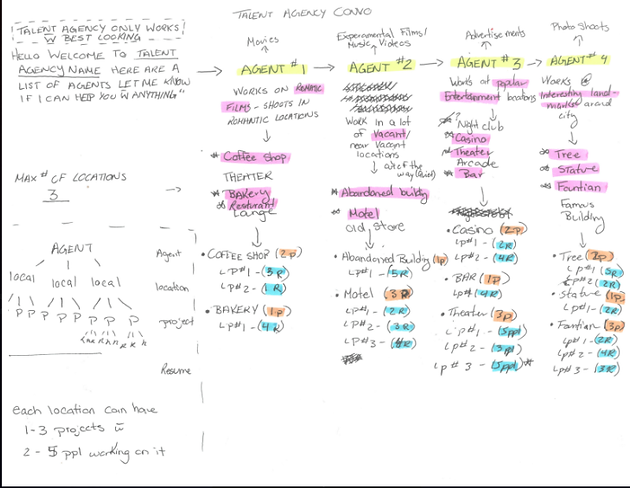 TALENT AGENCY CONVO
TALENT AGENCY ONLY WORKS
W BEST LOOKING
HELLO WELCOME TO TALENT
AGENCY NAME HERE ARE A
LIST OF AGENTS LET ME KNOW
IF I CAN HELP YOU W ANYTHING"
MAX # OF LOCATIONS
3
AGENT
local local local
P P P P P P P
Agent
location
project
Resume
each location can have
1-3 projects
2 - 5 ppl working on it
Movies
AGENT #1
WORKS ON ROMANTIC
FILMS - SHOOTS IN
ROMANTIC LOCATIONS
Coffee Shop
THEATER
BAKERY
Resturant
Lounge
• COFFEE SHOP (2p)
LP#1 - (3R)
LP#2 - (1R)
• BAKERY (1p)
LP#1 - (4R)
Experamental Films/
Music Videos
AGENT #2
WORK IN A LOT
OF VACANT/
near Vacant
locations
Abandoned building
Motel
old store
• Abandoned Building (1p)
LP#1 - (5R)
• Motel (3R)
LP#1 - (2R)
LP#2 - (3R)
LP#3 - (4R)
Advertisements
AGENT #3
Works at popular
Entertainment locations
Night club
Casino
Theater
Arcade
Bar
• Casino (2p)
LP#1 - (2R)
LP#2 - (4R)
• BAR (1p)
LP#1 (4R)
• Theater (3p)
LP#1 - (5ppl)
LP#2 - (3ppl)
LP#3 - (5ppl)*
Photo Shoots
AGENT #4
Works @
Interesting land-
marks around
city
Tree
Statue
Fountian
Famous
Building
• Tree (2p)
LP#1 (5R)
LP#2 (2R)
• Statue (1p)
LP#1 - (2R)
• Fountian (3p)
LP#1 - (2R)
LP#2 - (4R)
LP#3 - (3R)